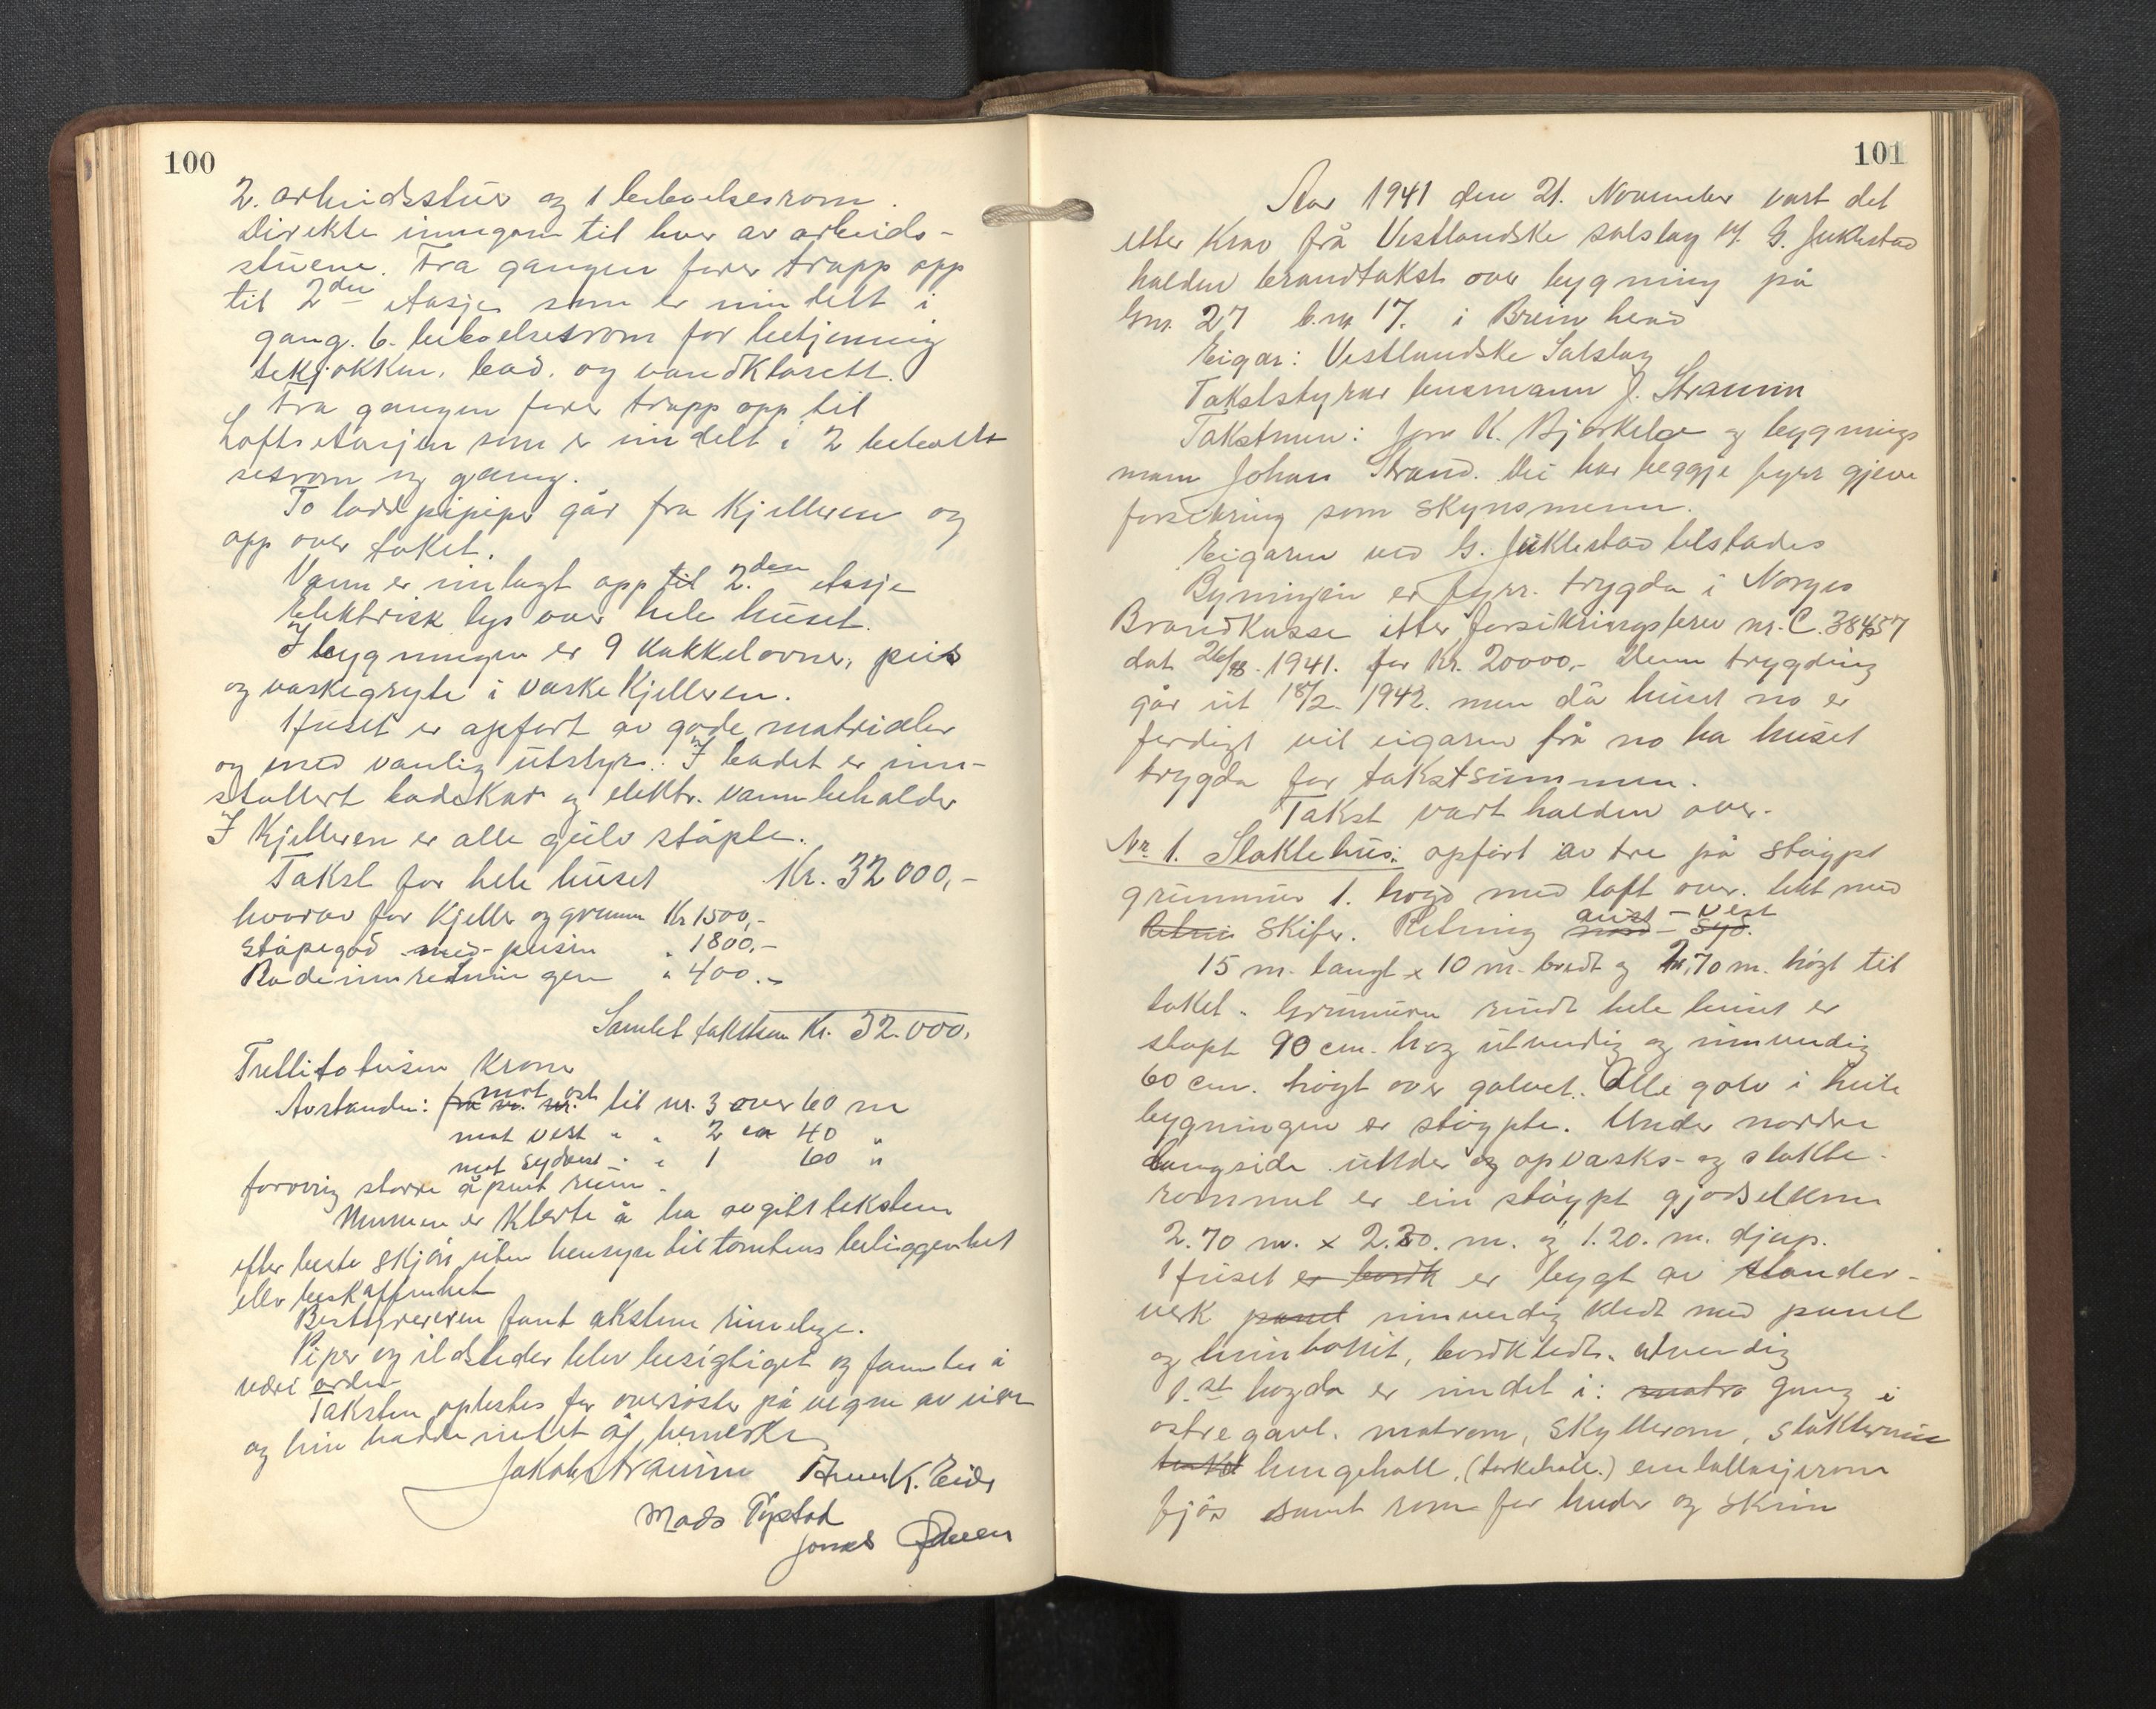 100
2. arbeidsstuer og 1 beboelsesrom.
Direkte inngan til hver av arbeids-
stuene. Fra gangen fører trapp opp
til 2den etasje som er inndelt i
gang. 6. beboelsesrom for betjening
tekjøkken, bad. og vandklosett.
Fra gangen fører trapp opp til
Loftsetasjen som er inndelt i 2 beboel-
sesrom og gang.
To pipiper går fra Kjelleren og
opp over taket.
Vann er innlagt opp til 2.den etasje
Elektrisk lys over hele huset.
I bygningen er 9 kakkelovner, peis
og vaskegryte i vaskekjelleren.
Huset er opført av gode matrialer
og med vanlig utstyr. I badet er inn-
stallert badekar og elektr. vannbeholder
I Kjelleren er alle gulv støpte.
Takst for hele huset Kr. 32000,-
hvorav for Kjeller og grunn Kr 1500,-
støpegod med peisen " 1800,-
Badeinnredningen " 400.-
Samlet takstsum Kr. 32.000,
Trettitotusen Kroner
Avstanden: fra nr. nr. mot øst til nr. 3 over 60 m
mot vest " " 2 ca 40 "
mot sydvest " " 1 60 "
forøvrig større åpent rum.
Mennene erklærte å ha avgitt taksten
efter beste skjøn uten hensyn til tomtens beliggenhet
eller beskaffenhet
Bestyrereren fant taksten rimelige.
Piper og ildsteder blev besigtiget og fantes i
være orden
Taksten oplestes for oversøster på vegne av eier
og hun hadde intet å bemerke
Jakob Straume K. Eide
Mads Tystad
Jonas
101
Aar 1941 den 21. November vart det
etter Krav frå Vestlandske salslag v/ G. Juklestad
halden brandtakst over bygning på
Gnr. 27 b.nr 17. i Breim herad
Eigar: Vestlandske Salslag
Takststyrar lensmann J. Straume
Takstmenn: Jon K. Bjørkelo og bygnings
mann Johan Strand. Dei har beggje fyrr gjeve
forsikring som skynsmenn.
Eigaren ved G. Juklestad tilstades
Bygningen er fyrr. trygda i Norges
Brandkasse etter forsikringsbrev nr. C. 38457
dat 26/8. 1941. for kr. 20000,- Denne trygding
går ut 18/2. 1942. men då huset no er
ferdigt vil eigaren frå no ha huset
trygda for takstsummen.
Takst vart halden over.
Nr 1. Slaktehus: opført av tre på støypt
grunnmur 1. høgd med loft over. tekt med
skifer. Retning nord - syd. aust - vest
15 m. langt x 10 m. bredt og 2,70 m. høgt til
taket. Grunnuren rundt hele huset er
støpt 90 cm. høg utvendig og innvendig
60 cm. høgt over golvet. Alle golv i heile
bygningen er støypte. Under nordre
langside under og opvasks- og slakte-
rommet er ein støypt gjødselkum
2.70 m. x 2.20. m. og 1.20. m. djup.
Huset er bordk er bygt av stander-
verk panel innvendig kledt med panel
og hunbonit, bordkledt. utvendig
1.st høgda er inndelt i: matro Gang i
østre gavl. matrom, skyllerom, slakterum
hengehall, (tørkehall.) emballasjerom
fjøs samt rom for huder og skinn